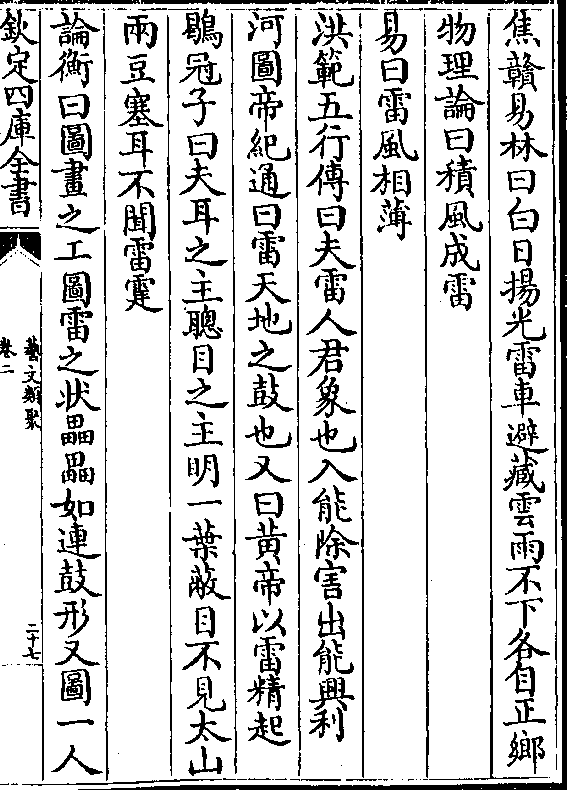 焦贛易林曰白日揚光雷車避藏雲雨不下各自正鄉
物理論曰積風成雷
易曰雷風相薄
洪範五行傳曰夫雷人君象也入能除害出能興利
河圖帝紀通曰雷天地之鼓也又曰黃帝以雷精起
鶡冠子曰夫耳之主聰目之主明一葉蔽目不見太山
兩豆塞耳不聞雷霆
論衡曰圖畫之工圖雷之狀畾畾如連鼓形又圖一人
欽定四庫全書
藝文類聚
卷二
二十七